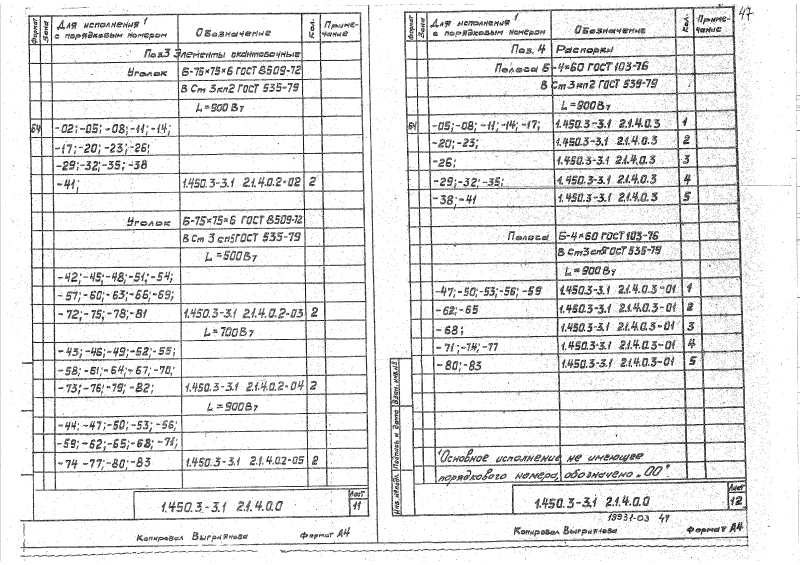 Формат Зона Для исполнения¹ с порядковым номером Обозначение Кол. Примечание
Поз.3 Элементы окантовочные
Уголок Б-75×75×6 ГОСТ 8509-72
В Ст 3кп2 ГОСТ 535-79
L=900 Вт
БЧ -02;-05;-08;-11;-14;
-17;-20;-23;-26;
-29;-32;-35;-38
-41; 1.450.3-3.1 2.1.4.0.2-02 2
Уголок Б-75×75×6 ГОСТ 8509-72
В Ст 3 сп5 ГОСТ 535-79
L=500 Вт
-42;-45;-48;-51;-54;
-57;-60;-63;-66;-69;
-72;-75;-78;-81 1.450.3-3.1 2.1.4.0.2-03 2
L=700 Вт
-43;-46;-49;-52;-55;
-58;-61;-64;-67;-70;
-73;-76;-79;-82; 1.450.3-3.1 2.1.4.0.2-04 2
L=900 Вт
-44;-47;-50;-53;-56;
-59;-62;-65;-68;-71;
-74-77;-80;-83 1.450.3-3.1 2.1.4.0.2-05 2
1.450.3-3.1 2.1.4.0.0
Лист
11
Копировал Выгриянова Формат А4
47
Формат Зона Для исполнения¹ с порядковым номером Обозначение Кол. Примечание
Поз. 4 Распорки
Полоса Б-4×60 ГОСТ 103-76
В Ст 3кп2 ГОСТ 535-79
L=900 Вт
БЧ -05;-08;-11;-14;-17; 1.450.3-3.1 2.1.4.0.3 1
-20;-23; 1.450.3-3.1 2.1.4.0.3 2
-26; 1.450.3-3.1 2.1.4.0.3 3
-29;-32;-35; 1.450.3-3.1 2.1.4.0.3 4
-38;-41 1.450.3-3.1 2.1.4.0.3 5
Полоса Б-4×60 ГОСТ 103-76
В Ст3сп5 ГОСТ 535-79
L=900 Вт
-47;-50;-53;-56;-59 1.450.3-3.1 2.1.4.0.3-01 1
-62;-65 1.450.3-3.1 2.1.4.0.3-01 2
-68; 1.450.3-3.1 2.1.4.0.3-01 3
-71;-74;-77 1.450.3-3.1 2.1.4.0.3-01 4
-80;-83 1.450.3-3.1 2.1.4.0.3-01 5
¹Основное исполнение, не имеющее
порядкового номера, обозначено „00"
Инв. №подл. Подпись и дата Взам. инв.№
1.450.3-3.1 2.1.4.0.0
Лист
12
18931-03 47
Копировал Выгриянова Формат А4